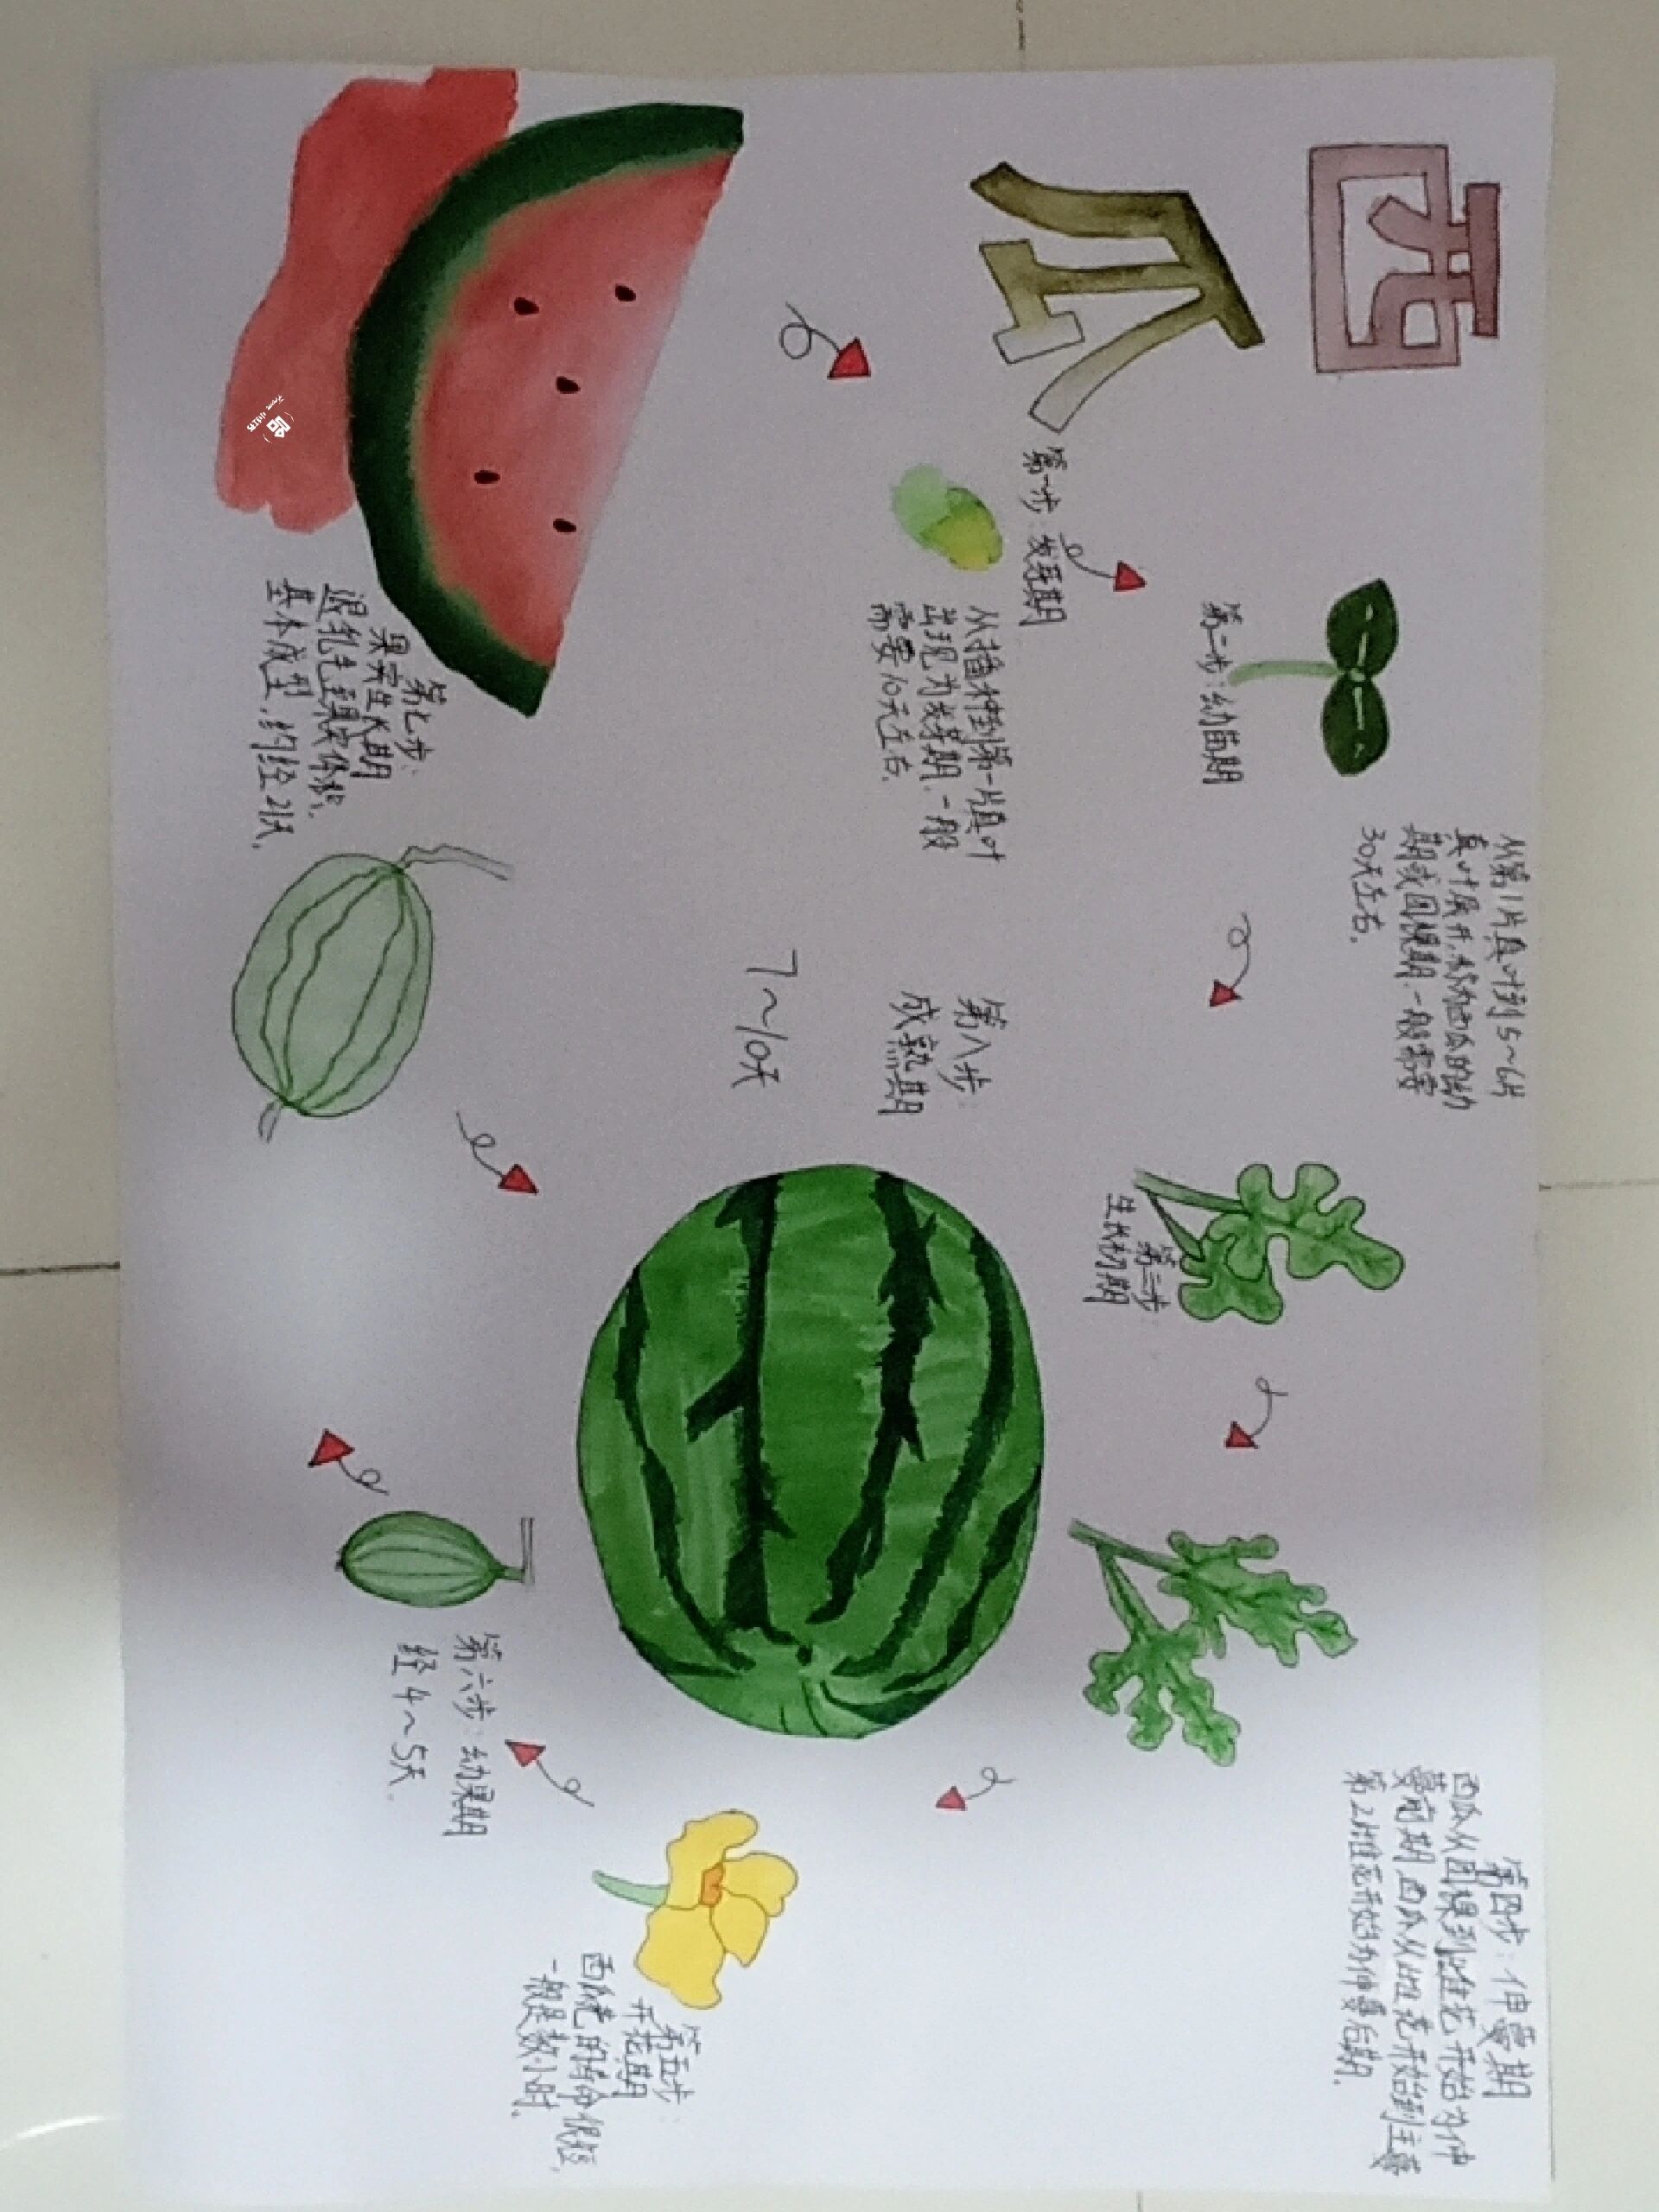 西瓜
第一步：发芽期
从播种到第一片真叶
出现为发芽期.一般
需要10天左右.
第二步：幼苗期
从第1片真叶到5～6片
真叶展开,称为西瓜的幼
期或团棵期.一般需要
30天左右.
第三步：
生长初期
第四步：伸蔓期
西瓜从团棵到雄花开始为伸
蔓前期 西瓜从雄花开始到主蔓
第2雌花开始为伸蔓后期.
第五步：
开花期
西瓜花的寿命很短,
一般是数小时.
第六步：幼果期
经4～5天.
第七步：
果实生长期
退乳毛至果实体积
基本成型,约经21天,
第八步：
成熟期
7～10天